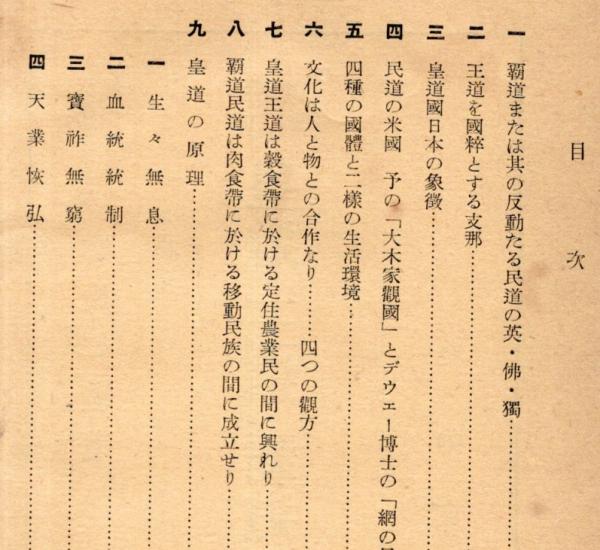 目次
一 覇道または其の反動たる民道の英・佛・獨
二 王道を國粹とする支那
三 皇道國日本の象徵
四 民道の米國 予の「大木家觀國」とデウェー博士の「網の
五 四種の國體と二樣の生活環境
六 文化は人と物との合作なり……四つの觀方
七 皇道王道は穀食帶に於ける定住農業民の間に興れり
八 覇道民道は肉食帶に於ける移動民族の間に成立せり
九 皇道の原理
一 生々無息
二 血統統制
三 寶祚無窮
四 天業恢弘